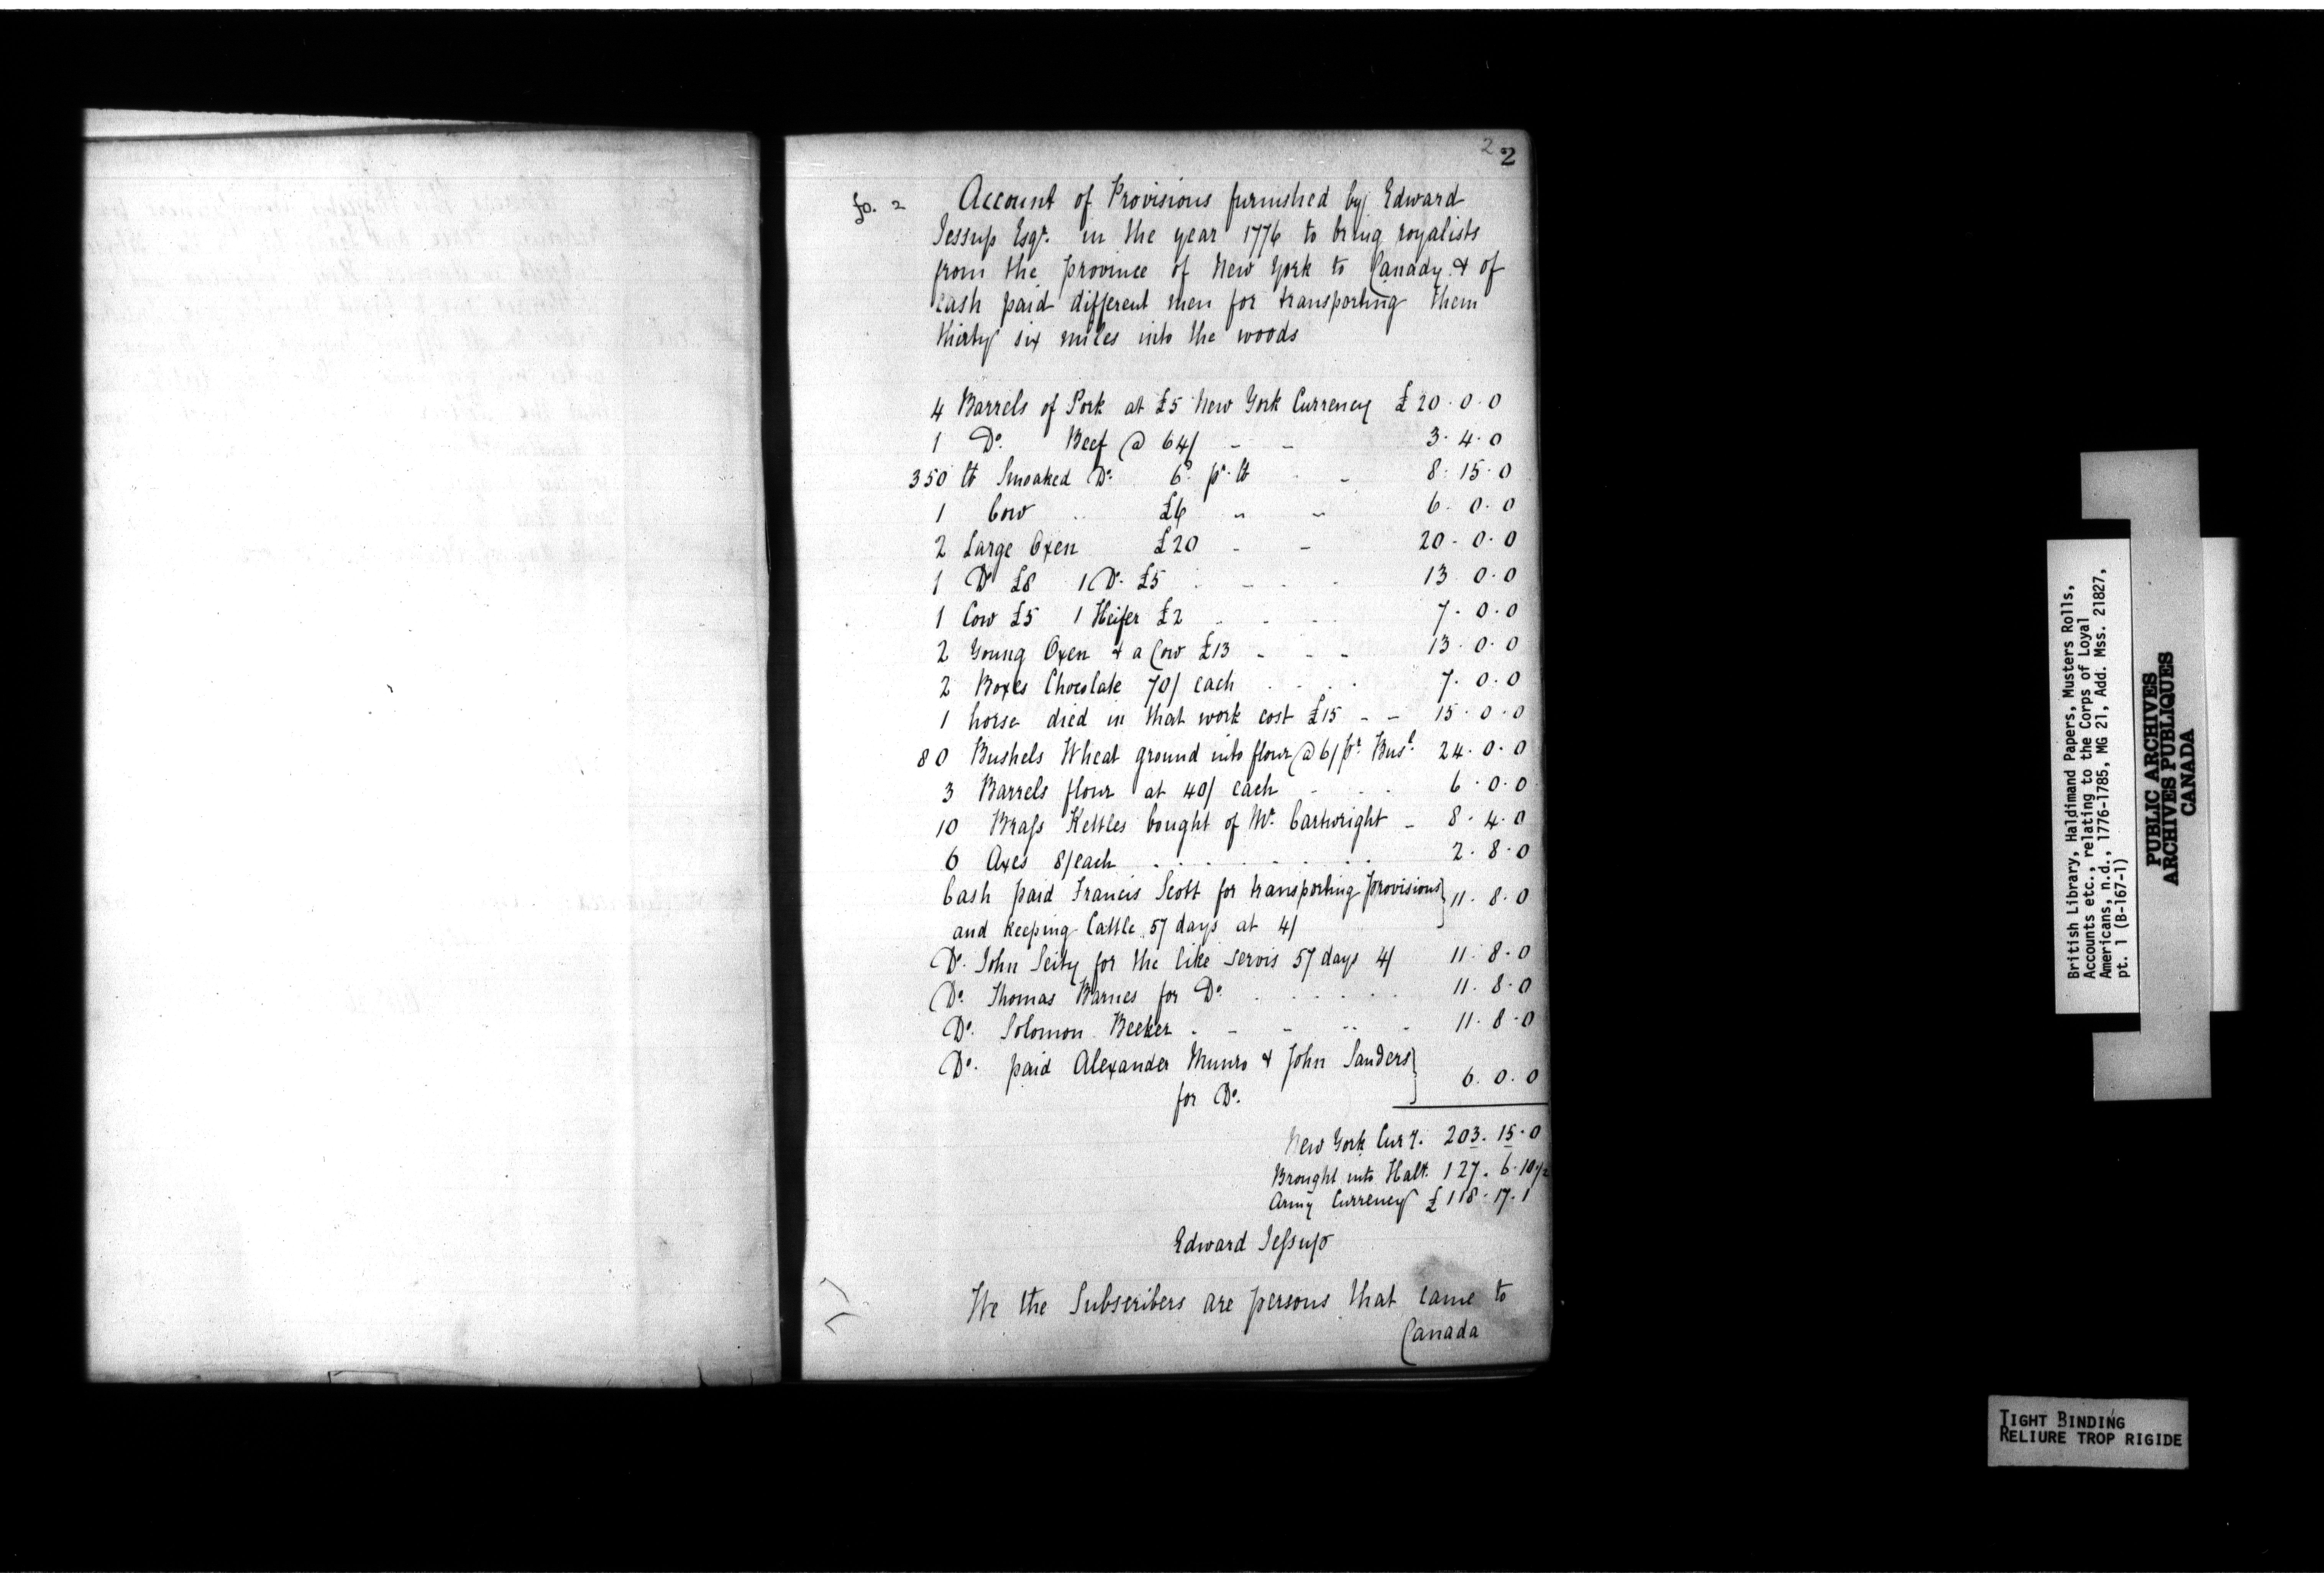 2 2
fo. 2 Account of Provisions furnished by Edward
Jessup Esqr. in the year 1776 to bring royalists
from the province of New York to Canady & of
Cash paid different men for transporting them
thirty six miles into the woods
4 Barrels of Pork at £5 New York Currency £20.0.0
1 Do. Beef @ 64/ - - 3.4.0
350 lb Smoaked Do. 6d pr. lb - 8.15.0
1 Cow £6 - - 6.0.0
2 Large Oxen £20 - - 20.0.0
1 Do £8 1 Do. £5 - - - 13.0.0
1 Cow £5 1 Heifer £2 - - - 7.0.0
2 Young Oxen & a Cow £13 - - - 13.0.0
2 Boxes Chocolate 70/ each - - - 7.0.0
1 horse died in that work cost £15 - - 15.0.0
80 Bushels Wheat ground into flour @ 6/ pr. Busl. 24.0.0
3 Barrels flour at 40/ each - - - 6.0.0
10 Brass Kettles bought of Mr. Cartwright - 8.4.0
6 Axes 8/ each . . . . . . . 2.8.0
Cash paid Francis Scott for transporting provisions} 11.8.0
and keeping Cattle 57 days at 4/
Do. John for the like servis 57 days 4/ 11.8.0
Do. Thomas Barnes for Do. . . . . . 11.8.0
Do. Solomon Beeker - - - - - 11.8.0
Do. paid Alexander Munro & John Sanders} 6.0.0
for Do.
New York Curry. 203.15.0
Brought into Halx. 127.6.10½
Army Currency £118.17.1
Edward Jessup
We the Subscribers are persons that came to
Canada
British Library, Haldimand Papers, Musters Rolls,
Accounts etc., relating to the Corps of Loyal
Americans, n.d., 1776-1785, MG 21, Add. Mss. 21827,
pt. 1 (B-167-1)
PUBLIC ARCHIVES
ARCHIVES PUBLIQUES
CANADA
TIGHT BINDING
RELIURE TROP RIGIDE